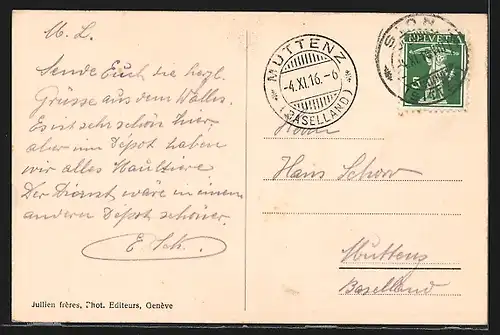 M. L.
Sende Euch die hezl.
Grüsse aus dem Wallis.
Es ist sehr schön hier,
aber im Dépot haben
wir alles Maultiere.
Der Dienst wäre in einem
anderen Dépot schöner.
E. Sch.
Jullien frères, Phot. Editeurs, Genève
MUTTENZ
-4.XI.16.-6
(BASELLAND)
SION
HELVETIA
5
Herrn
Hans Schorr
Muttenz
Baselland